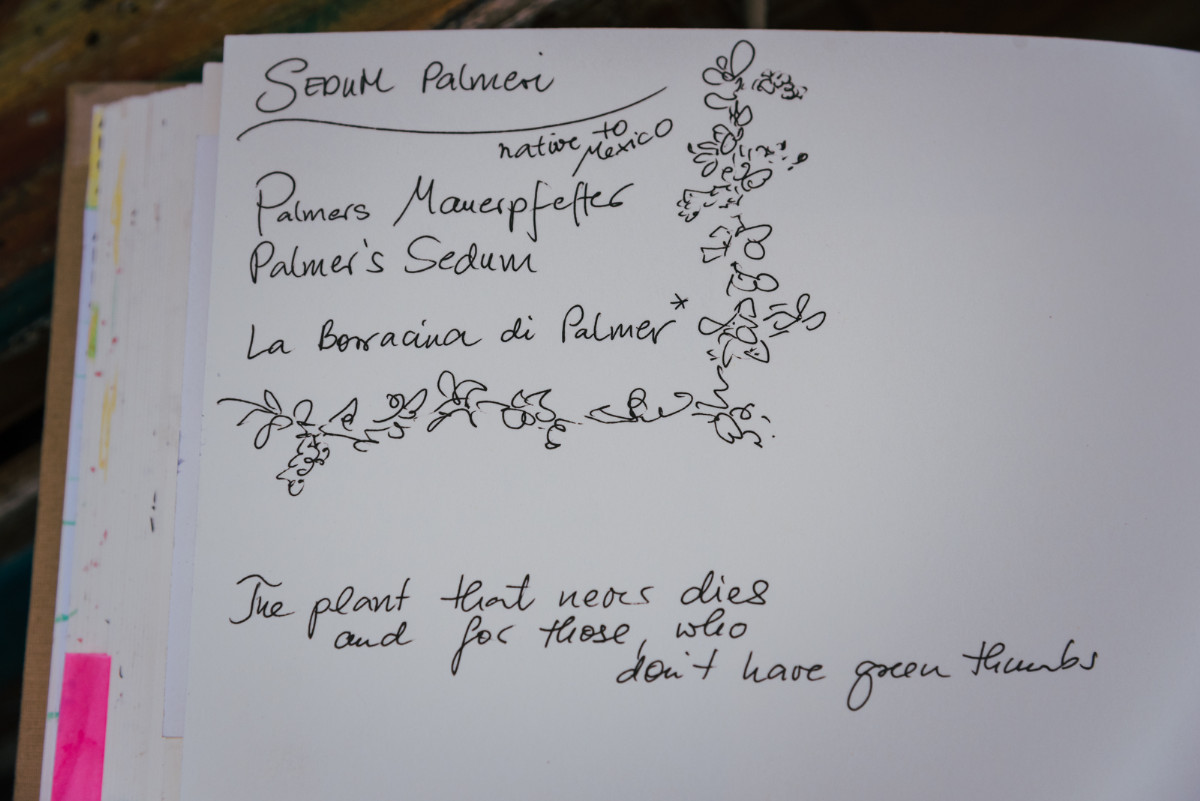 SEDUM Palmeri
native to
Mexico
Palmers Mauerpfeffer
Palmer's Sedum
La Borracina di Palmer*
The plant that never dies
and for those, who
don't have green thumbs